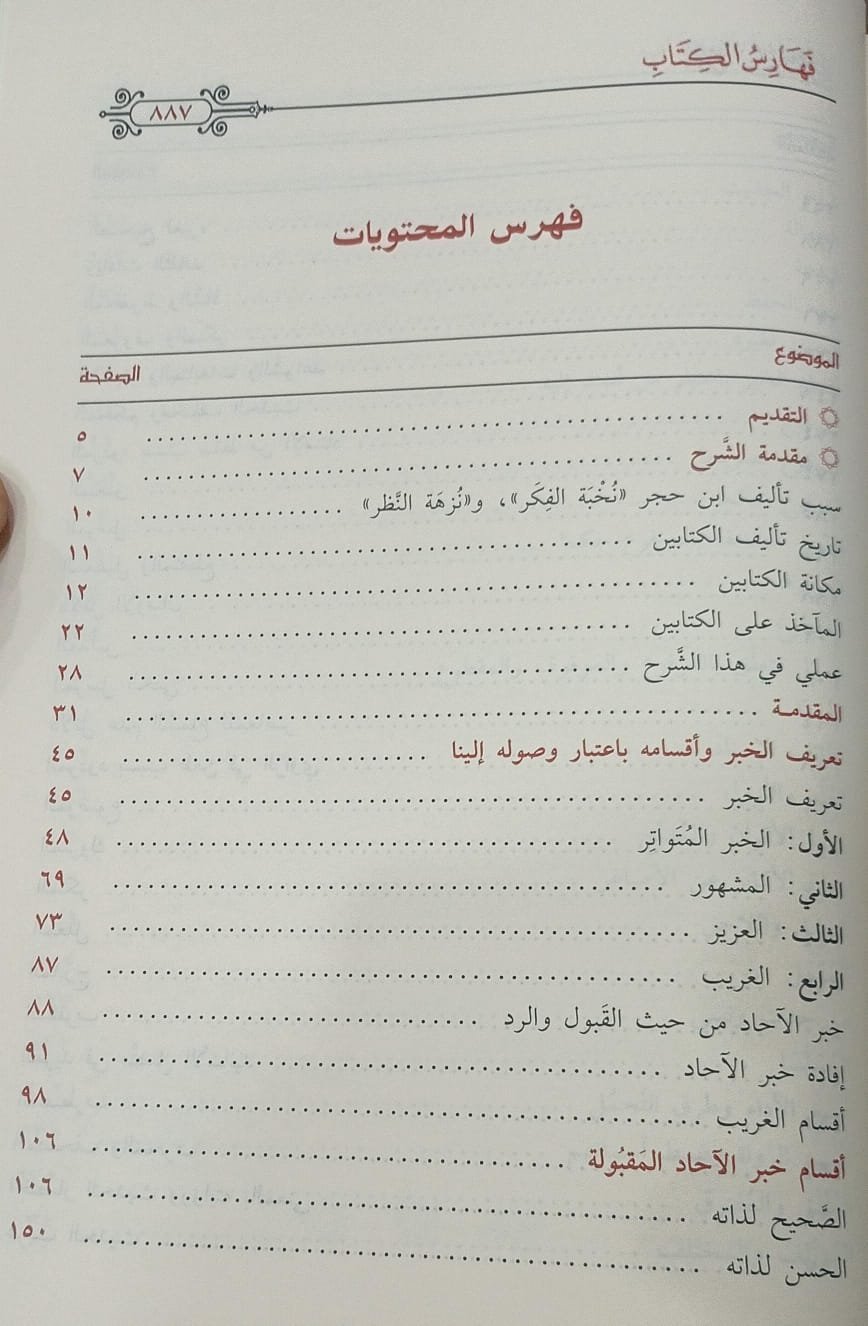 فَهَارِسُ الكِتَابِ
٨٨٧
فهرس المحتويات
الموضوع الصفحة
التقديم ٥
مقدمة الشَّرح ٧
سبب تأليف ابن حجر «نُخْبَة الفِكَر»، و«نُزهَة النَّظر» ١٠
تاريخ تأليف الكتابين ١١
مكانة الكتابين ١٢
المآخذ على الكتابين ٢٢
عملي في هذا الشَّرح ٢٨
المقدمـة ٣١
تعريف الخبر وأقسامه باعتبار وصوله إلينا ٤٥
تعريف الخبر ٤٥
الأول: الخبر المُتَواتِر ٤٨
الثاني: المشهور ٦٩
الثالث: العزيز ٧٣
الرابع: الغريب ٨٧
خبر الآحاد من حيث القَبول والرد ٨٨
إفادة خبر الآحاد ٩١
أقسام الغريب ٩٨
أقسام خبر الآحاد المَقبُولة ١٠٦
الصَّحيح لذاته ١٠٦
الحسن لذاته ١٥٠